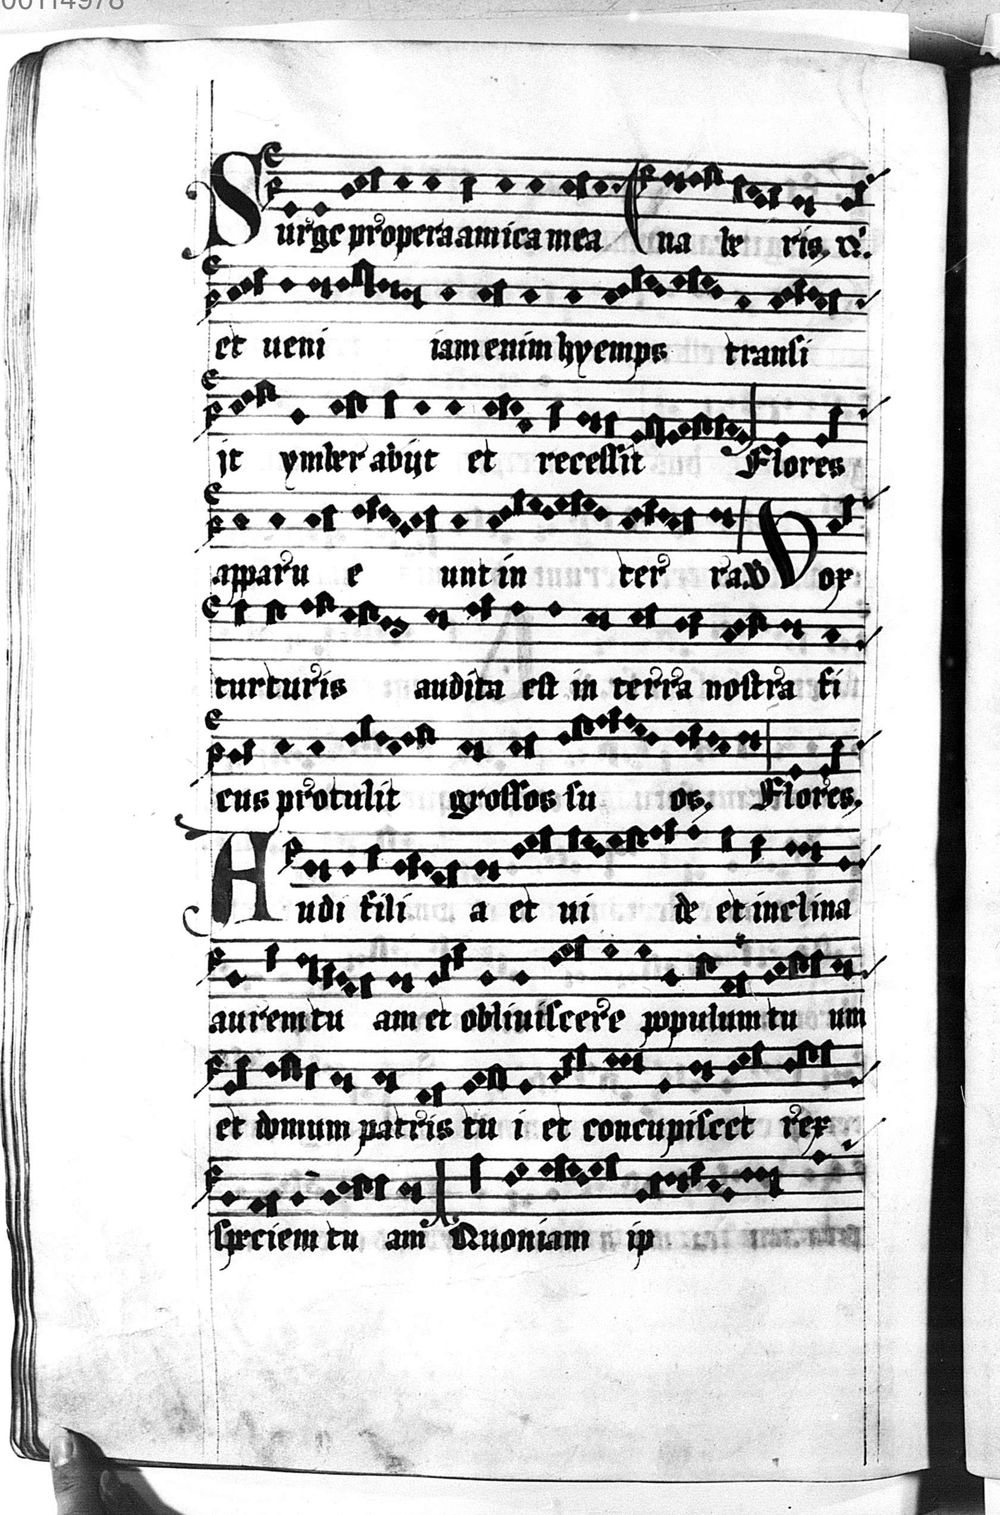 00114978
Surge propera amica mea na le ris. R.
et veni iam enim hyemps transi
jt ymber abijt et recessit Flores
apparu e unt in ter ra. V Vox
turturis audita est in terra nostra fi
cus protulit grossos su os. Flores.
Audi fili a et vi de et inclina
aurem tu am et obliuiscere populum tu um
et domum patris tu i et concupiscet rex
speciem tu am Quoniam ip